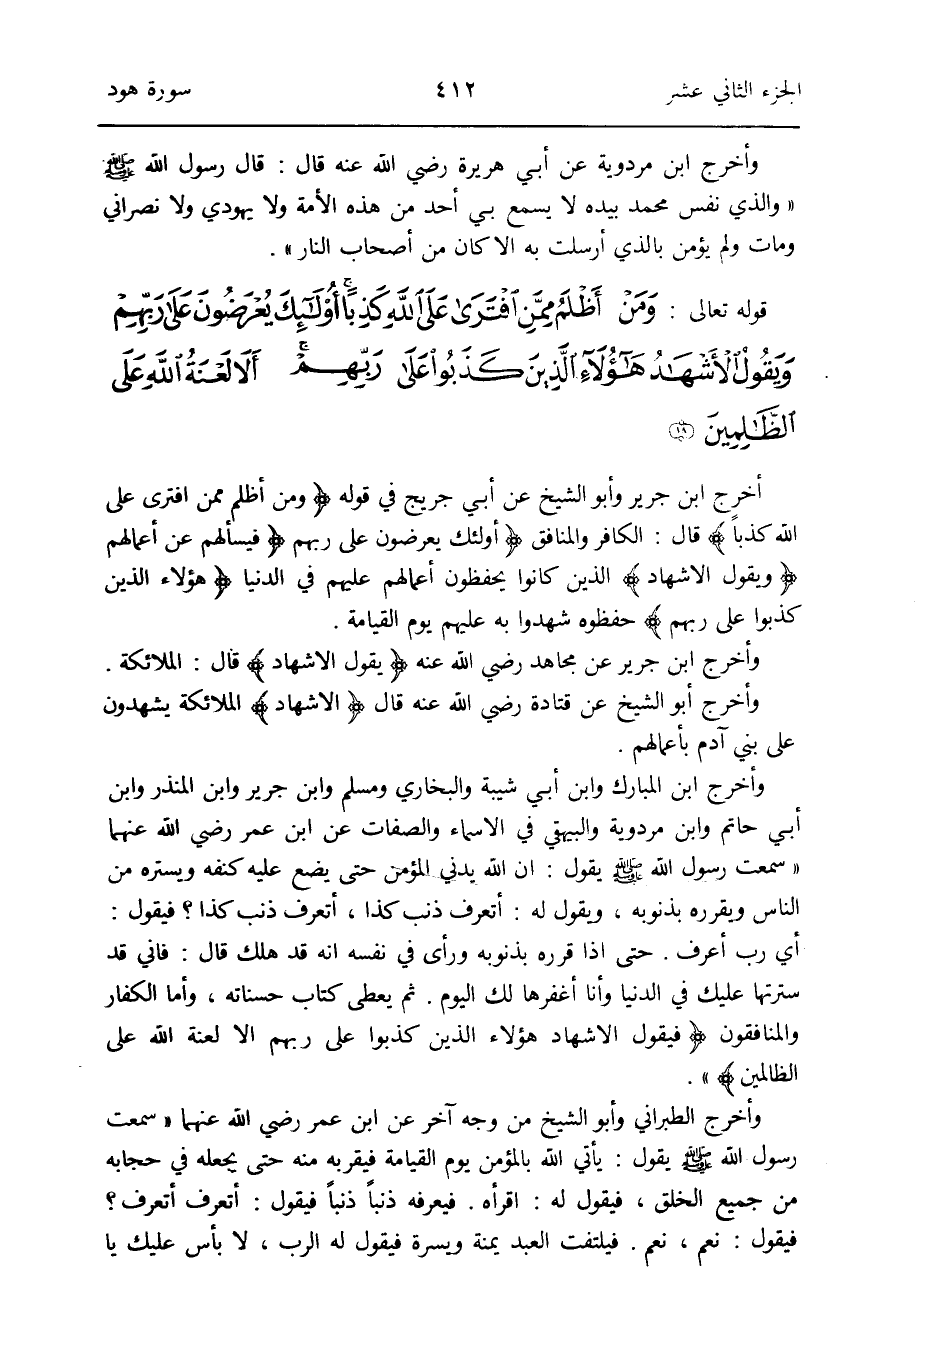 الجزء الثاني عشر ٤١٢ سورة هود
وأخرج ابن مردوية عن أبي هريرة رضي الله عنه قال : قال رسول الله ﷺ
« والذي نفس محمد بيده لا يسمع بي أحد من هذه الأمة ولا يهودي ولا نصراني
ومات ولم يؤمن بالذي أرسلت به الا كان من أصحاب النار » .
قوله تعالى : وَمَنْ أَظْلَمُ مِمَّنِ ٱفْتَرَىٰ عَلَى ٱللَّهِ كَذِبًا ۚ أُوْلَٰٓئِكَ يُعْرَضُونَ عَلَىٰ رَبِّهِمْ
وَيَقُولُ ٱلْأَشْهَٰدُ هَٰٓؤُلَآءِ ٱلَّذِينَ كَذَبُوا۟ عَلَىٰ رَبِّهِمْ ۚ أَلَا لَعْنَةُ ٱللَّهِ عَلَى
ٱلظَّٰلِمِينَ ١٩
أخرج ابن جرير وأبو الشيخ عن أبي جريج في قوله ﴿ ومن أظلم ممن افترى على
الله كذباً ﴾ قال : الكافر والمنافق ﴿ أولئك يعرضون على ربهم ﴿ فيسألهم عن أعمالهم
﴿ ويقول الاشهاد ﴾ الذين كانوا يحفظون أعمالهم عليهم في الدنيا ﴿ هؤلاء الذين
كذبوا على ربهم ﴾ حفظوه شهدوا به عليهم يوم القيامة .
وأخرج ابن جرير عن مجاهد رضي الله عنه ﴿ يقول الاشهاد ﴾ قال : الملائكة .
وأخرج أبو الشيخ عن قتادة رضي الله عنه قال ﴿ الاشهاد ﴾ الملائكة يشهدون
على بني آدم بأعمالهم .
وأخرج ابن المبارك وابن أبي شيبة والبخاري ومسلم وابن جرير وابن المنذر وابن
أبي حاتم وابن مردوية والبيهقي في الاسماء والصفات عن ابن عمر رضي الله عنهما
« سمعت رسول الله ﷺ يقول : ان الله يدني المؤمن حتى يضع عليه كنفه ويستره من
الناس ويقرره بذنوبه ، ويقول له : أتعرف ذنب كذا ، أتعرف ذنب كذا ؟ فيقول :
أي رب أعرف . حتى اذا قرره بذنوبه ورأى في نفسه انه قد هلك قال : فاني قد
سترتها عليك في الدنيا وأنا أغفرها لك اليوم . ثم يعطى كتاب حسناته ، وأما الكفار
والمنافقون ﴿ فيقول الاشهاد هؤلاء الذين كذبوا على ربهم الا لعنة الله على
الظالمين ﴾ » .
وأخرج الطبراني وأبو الشيخ من وجه آخر عن ابن عمر رضي الله عنهما « سمعت
رسول الله ﷺ يقول : يأتي الله بالمؤمن يوم القيامة فيقربه منه حتى يجعله في حجابه
من جميع الخلق ، فيقول له : اقرأه . فيعرفه ذنباً ذنباً فيقول : أتعرف أتعرف ؟
فيقول : نعم ، نعم . فيلتفت العبد يمنة ويسرة فيقول له الرب ، لا بأس عليك يا